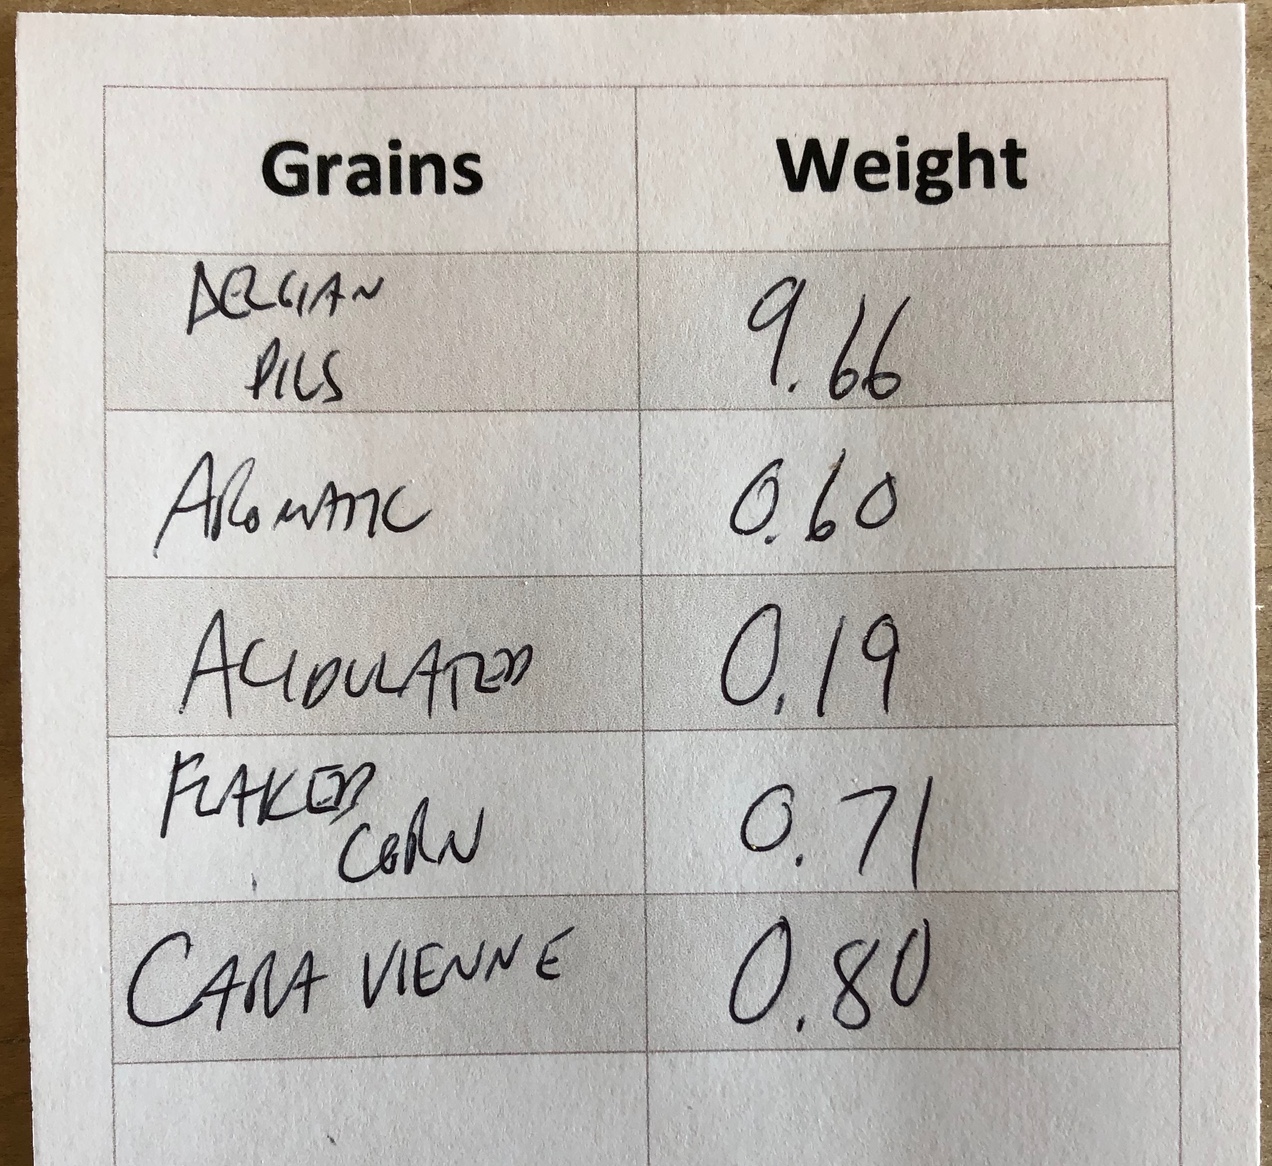 Grains Weight
BELGIAN
PILS 9.66
AROMATIC 0.60
ACIDULATED 0.19
FLAKED
CORN 0.71
CARA VIENNE 0.80